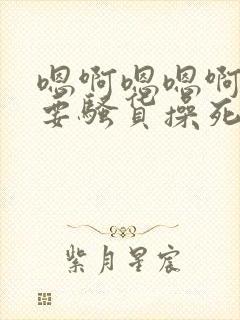 嗯啊嗯嗯啊
要骚货操死
紫月星宸